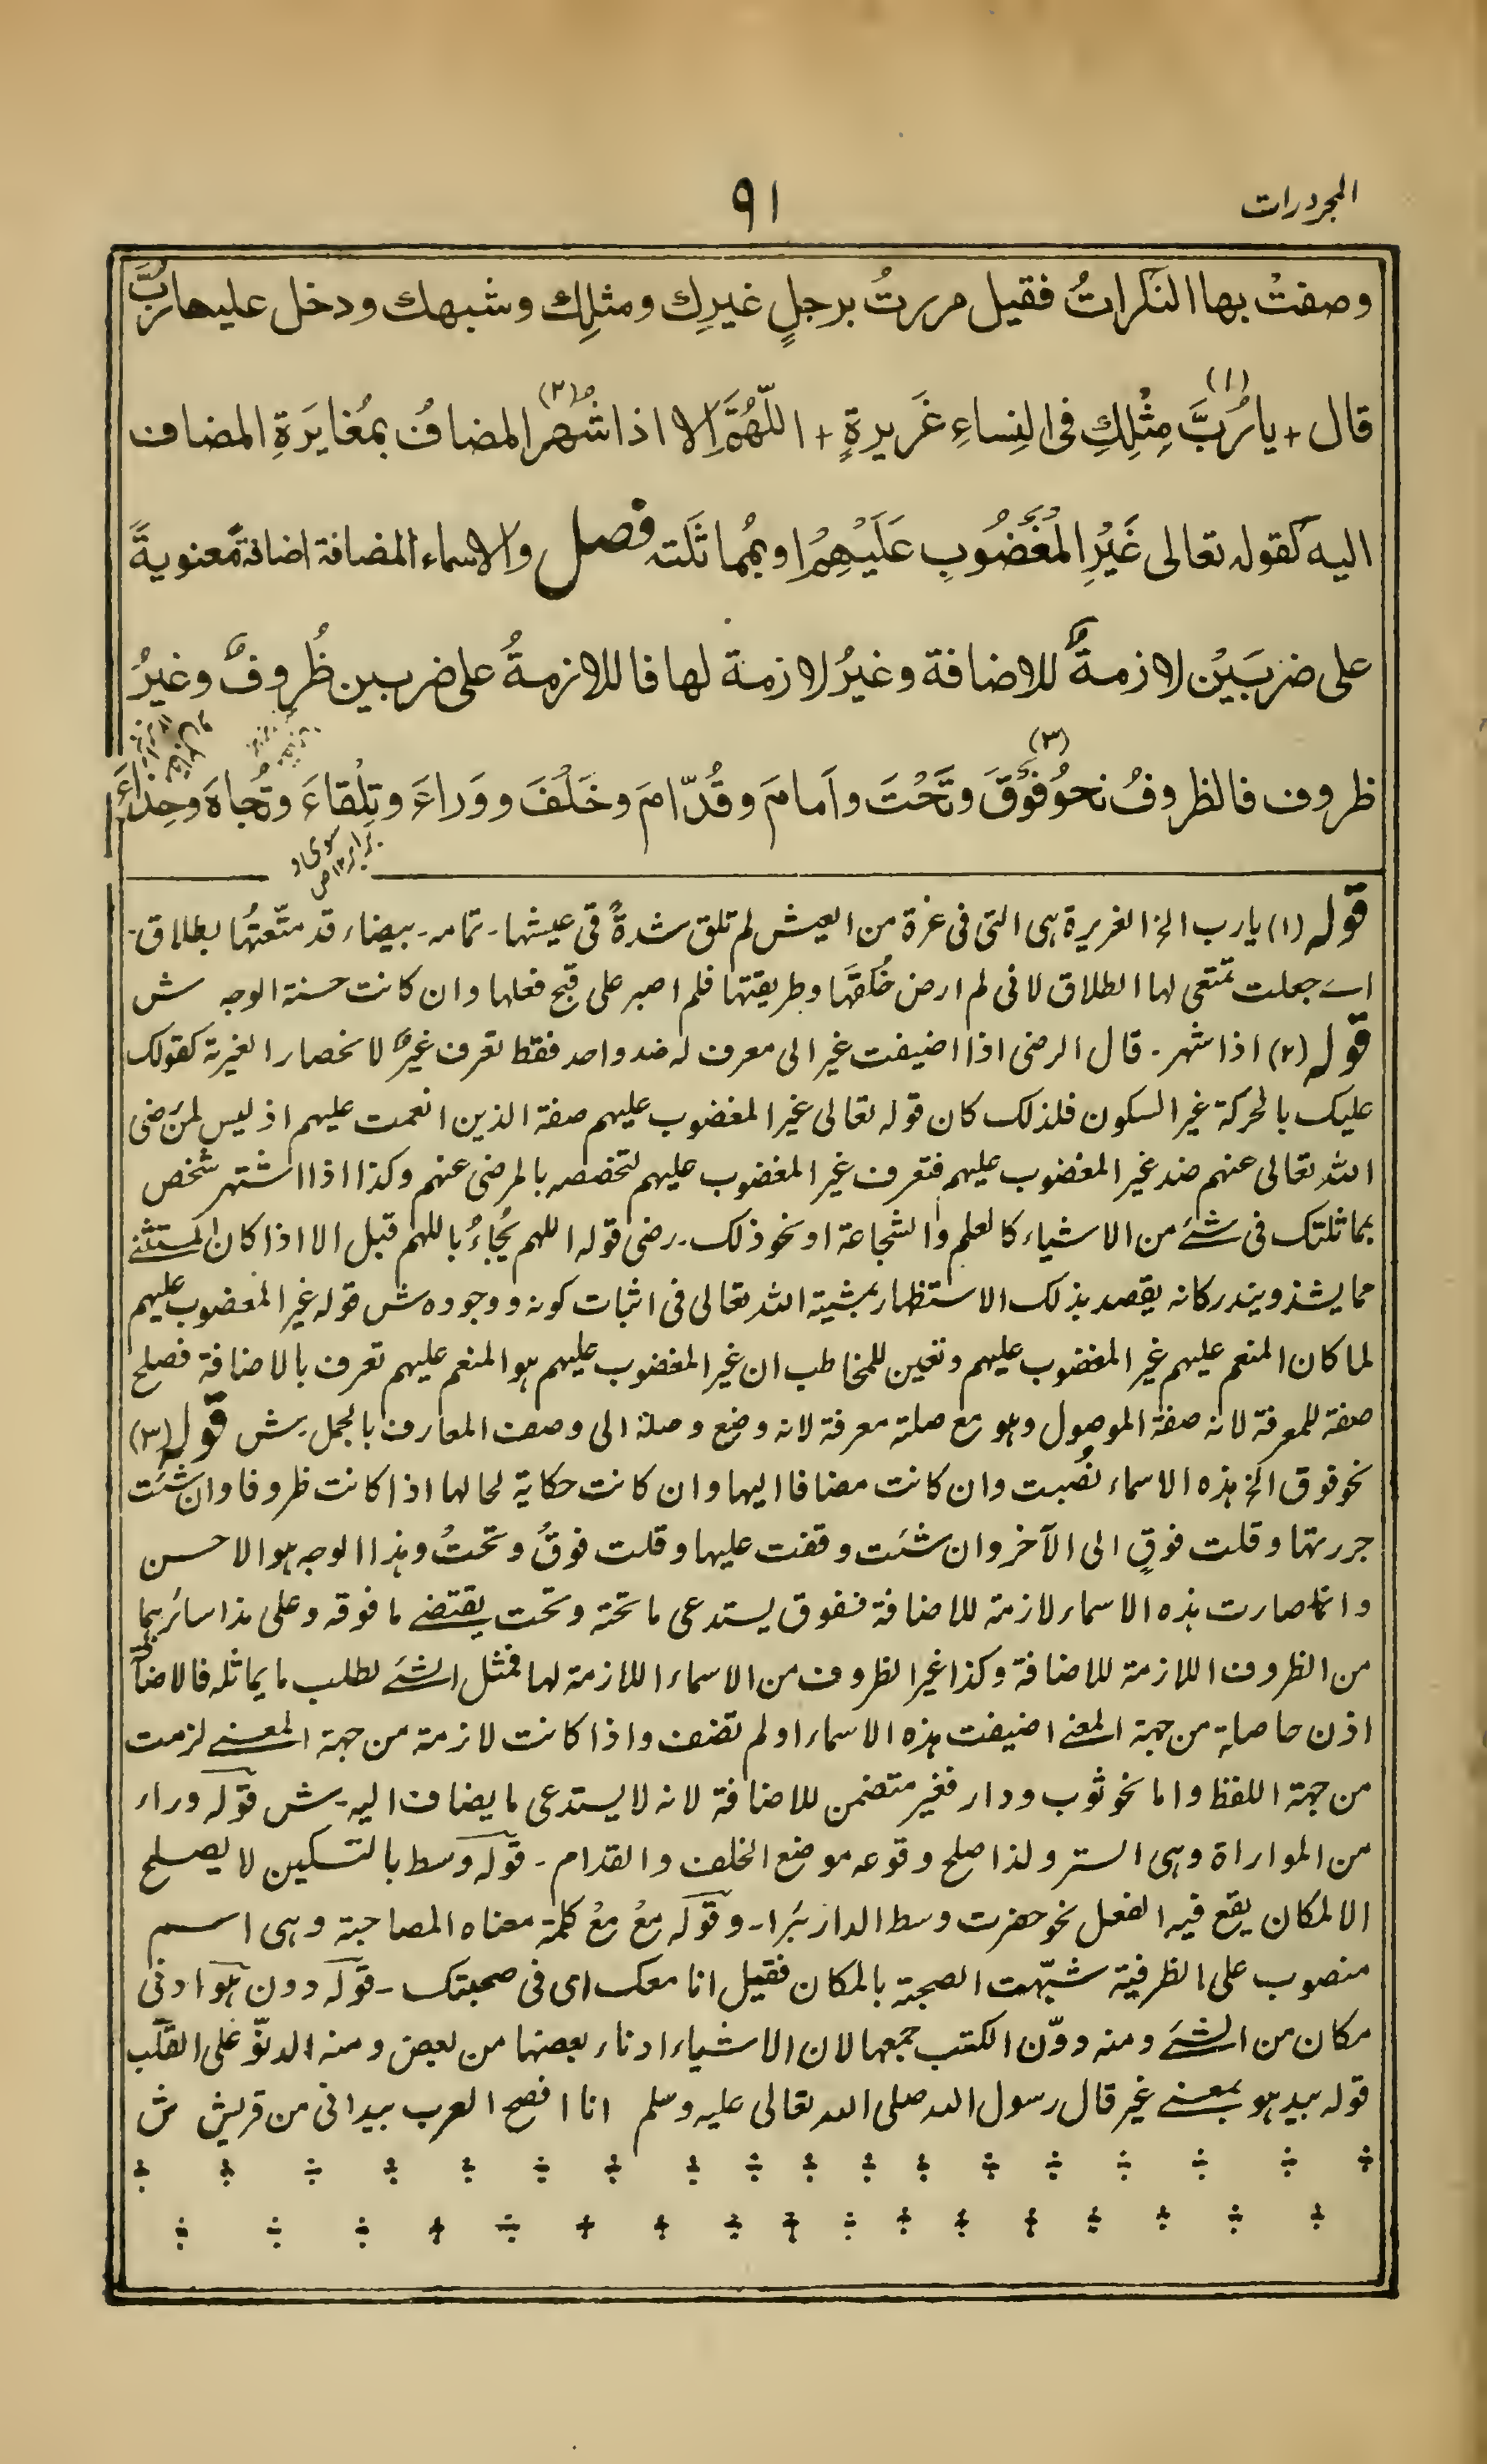 المجرورات
٩١
وصفتْ بها النكراتُ فقيل مررتُ برجلٍ غيرِك ومثلِك وشبهك ودخل عليها رُبَّ
قال + يا رُبَّ مِثْلِكِ فى النِساءِ غَرِيرةٍ + اللّهُمَّ اِلا اذا شُهر المضافُ بمُغايَرَةِ المضاف
(١) (٢)
اليه كقوله تعالى غَيْرِ المَغْضُوبِ عَلَيْهِمْ او بمُماثَلته فصل والاسماء المضافة اضافةً معنويةً
على ضربَيْن لازمةٌ للاضافة وغيرُ لازمة لها فاللازمةُ على ضربين ظُروفٌ وغيرُ
ظروف فالظروفُ نحوُ فَوْقَ وتَحْتَ واَمامَ وقُدّامَ وخَلْفَ ووَراءَ وتِلْقاءَ وتُجاهَ وحِذاءَ
(٣)
قوله (١) يا رب الخ الغريرة هى التى فى غرة من العيش لم تلق شدةً فى عيشها۔ تمامہ۔ بيضاء قد متّعتُها بطلاق۔
اے جعلت تمتعى لها الطلاق لانى لم ارض خُلقَها وطريقتها فلم اصبر على قبح فعلها وان كانت حسنة الوجه ش
قوله (٢) اذا شهر۔ قال الرضى اذا اضيفت غير الى معرف له ضد واحد فقط تعرف غيرٌ لانحصار الغيرية كقولك
عليك بالحركة غير السكون فلذلك كان قوله تعالى غير المغضوب عليهم صفة الذين انعمت عليهم اذ ليس لمن رضى
الله تعالى عنهم ضد غير المغضوب عليهم فتعرف غير المغضوب عليهم لتخصصه بالمرضى عنهم وكذا اذا اشتهر شخص
بمماثلتك فى شئ من الاشياء كالعلم والشجاعة او نحو ذلك۔ رضى قوله اللهم يُجاءُ باللهم قبل الا اذا كان المستثنے
مما يشذ ويندر كانه يقصد بذلك الاستظهار بمشية الله تعالى فى اثبات كونه ووجوده ش قوله غير المغضوب عليهم
لما كان المنعم عليهم غير المغضوب عليهم وتعين للمخاطب ان غير المغضوب عليهم هو المنعم عليهم تعرف بالاضافة فصلح
صفة للمعرفة لانه صفة الموصول وهو مع صلته معرفة لانه وضع وصلة الى وصف المعارف بالجمل۔ ش قوله (٣)
نحو فوق الخ هذه الاسماء نُصبت وان كانت مضافا اليها وان كانت حكاية لحالها اذا كانت ظروفا وان شئت
جررتها وقلت فوقٍ الى الآخر وان شئت وقفت عليها وقلت فوقُ وتحتُ وهذا الوجه هو الاحسن
وانما صارت هذه الاسماء لازمة للاضافة ففوق يستدعى ما تحته وتحت يقتضے ما فوقه وعلى هذا سائرهما
من الظروف اللازمة للاضافة وكذا غير الظروف من الاسماء اللازمة لها فمثل الشئ لطلب ما يماثله فالاضافة
اذن حاصلة من جهة المعنے اضيفت هذه الاسماء او لم تضف واذا كانت لازمة من جهة المعنے لزمت
من جهة اللفظ واما نحو ثوب ودار فغير متضمن للاضافة لانه لا يستدعى ما يضاف اليه۔ ش قوله وراء
من المواراة وهى الستر ولذا صلح وقوعه موضع الخلف والقدام۔ قوله وسط بالتسكين لا يصلح
الا لمكان يقع فيه الفعل نحو حفرت وسط الدار بئرا۔ وقوله معُ معُ كلمة معناه المصاحبة وهى اسم
منصوب على الظرفية شبّهت الصحبة بالمكان فقيل انا معك اى فى صحبتك۔ قوله دون هو ادنى
مكان من الشئ ومنه دوّن الكتب جمعها لان الاشياء ادناء بعضها من بعض ومنه الدنوّ على القلب
قوله بيد هو بمعنے غير قال رسول الله صلى الله تعالى عليه وسلم انا افصح العرب بيد انى من قريش ش